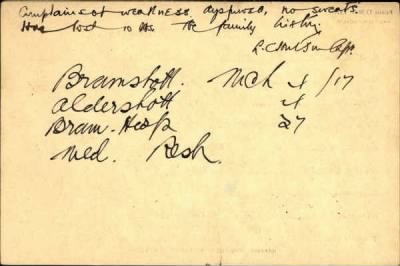 Complains of weakness, dyspnoea, no sweats.
Has lost 10 lbs. The family history.
Bramshott. Mch 4/17
Aldershott 4
Bram. Hosp 27
Med.